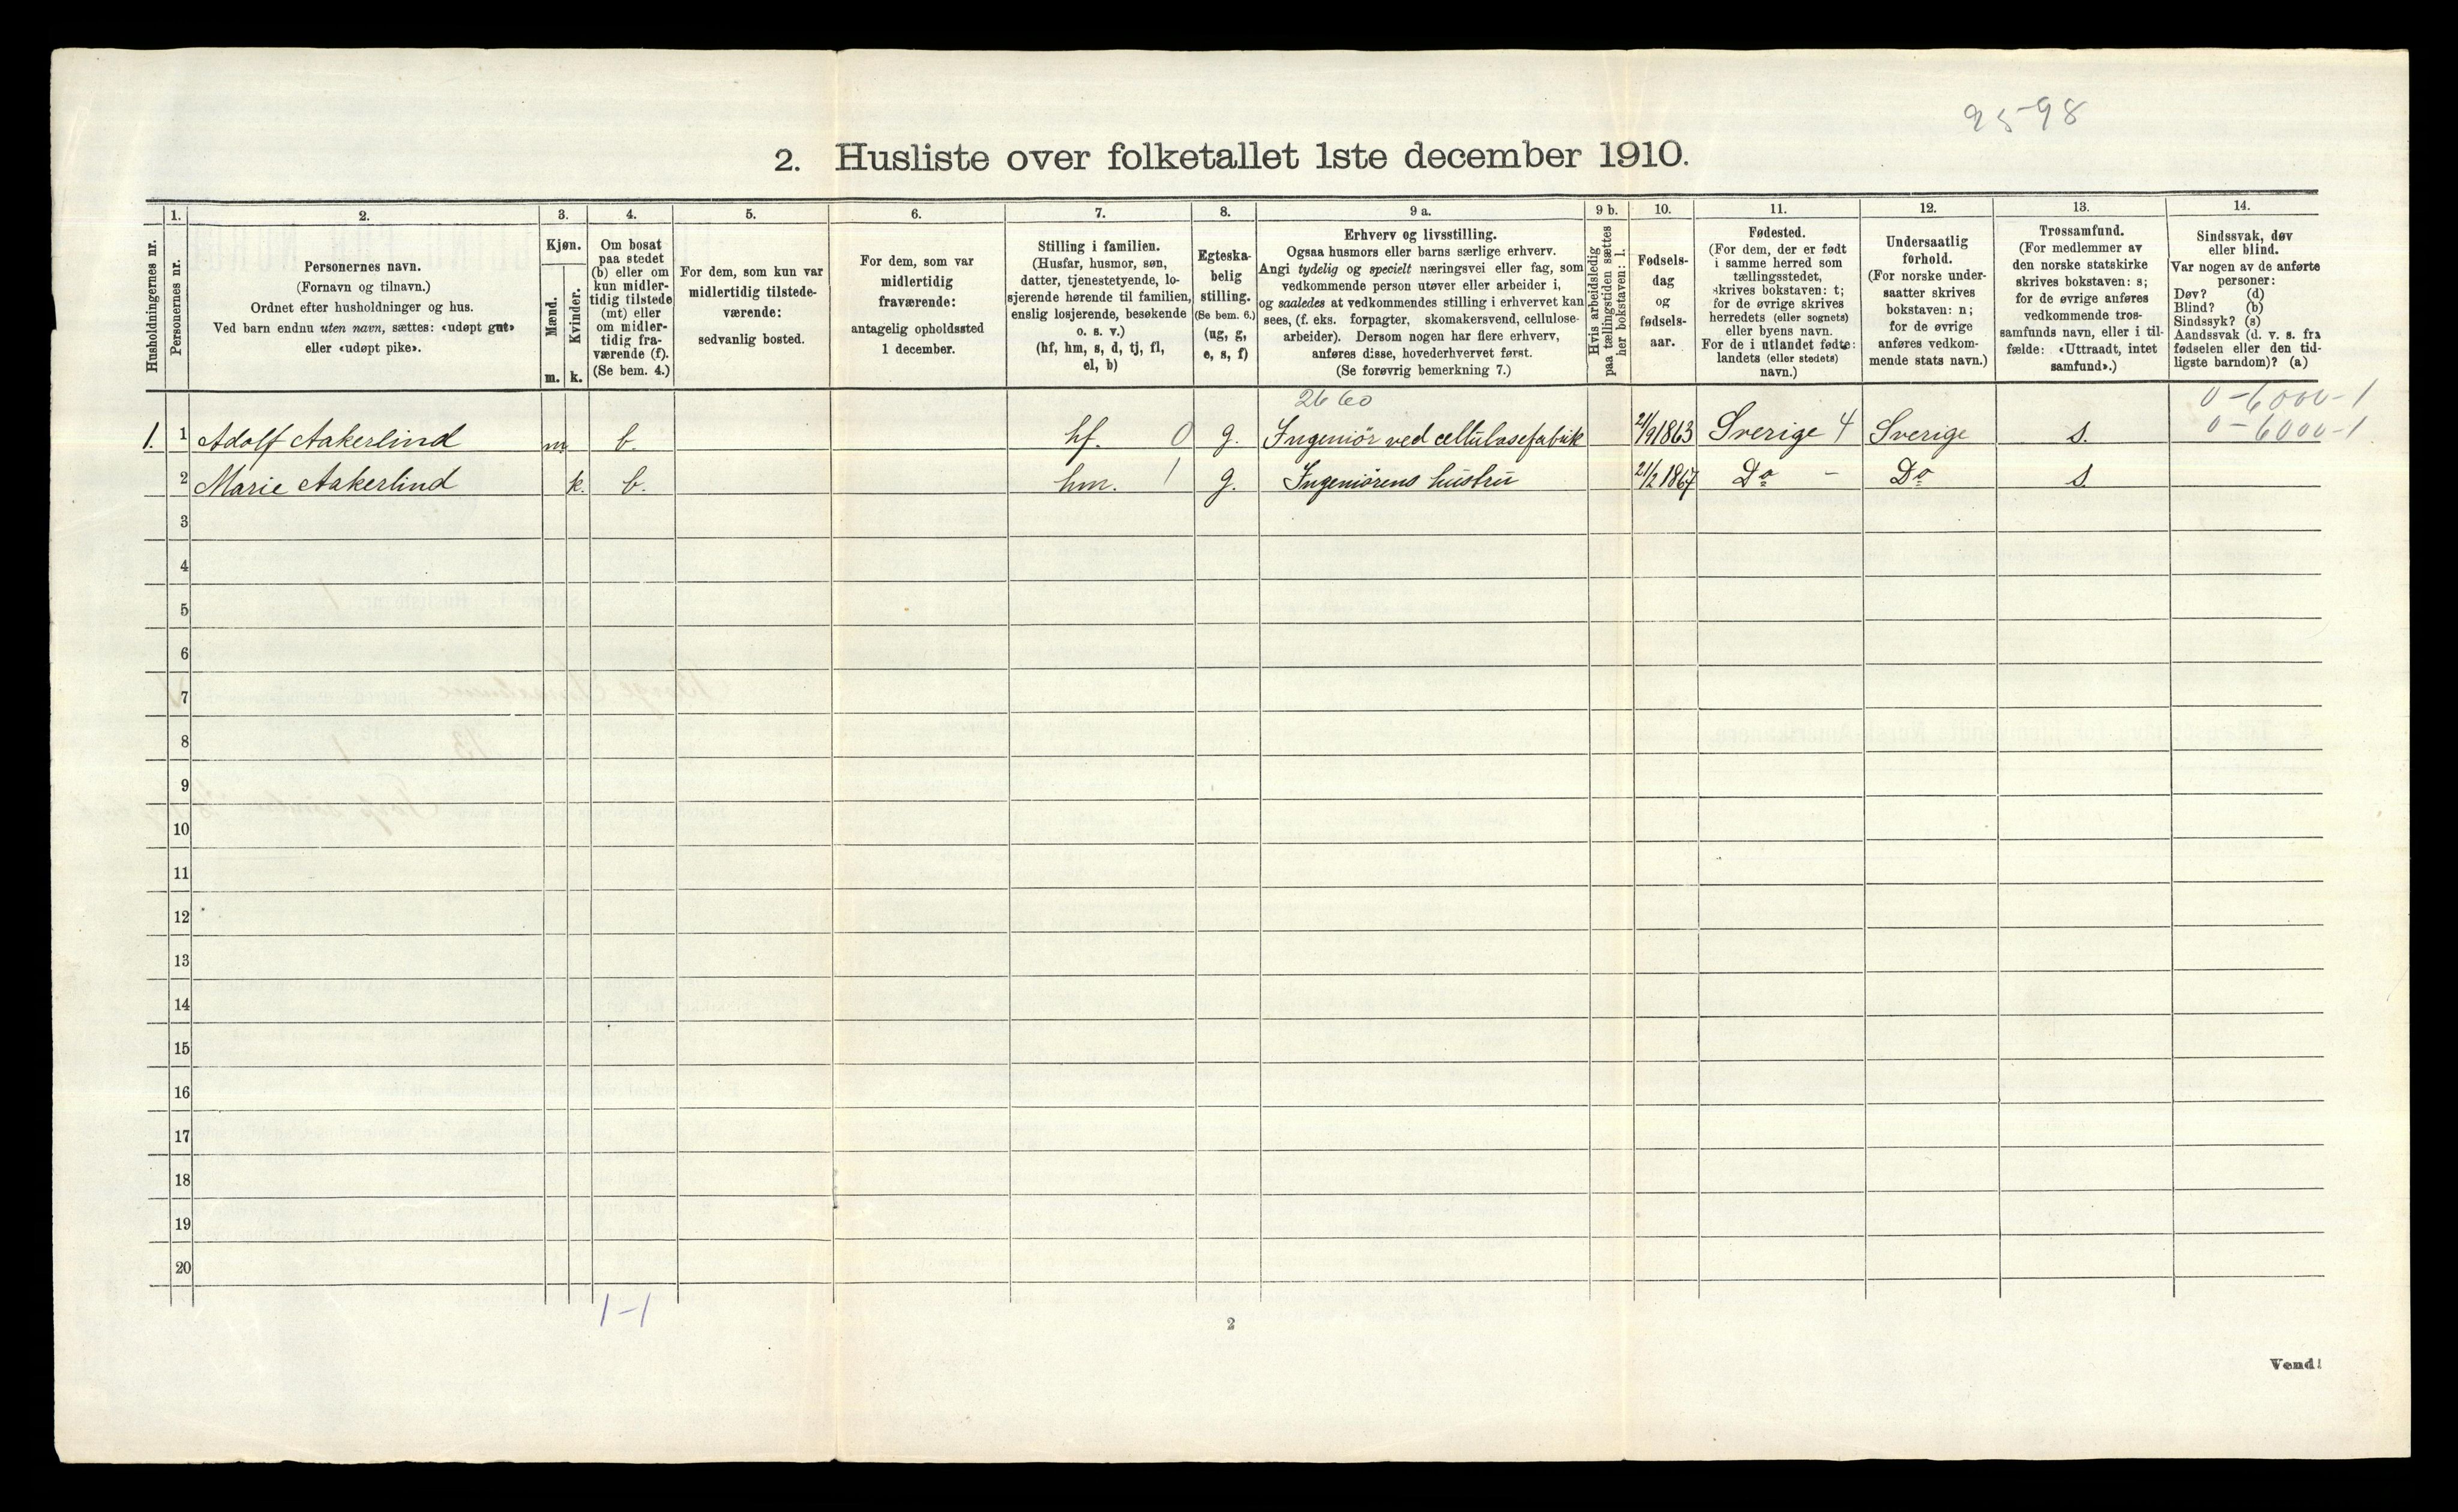 95-98
2. Husliste over folketallet 1ste december 1910.
Husholdningernes nr.
1.
Personernes nr.
2.
Personernes navn.
(Fornavn og tilnavn.)
Ordnet efter husholdninger og hus.
Ved barn endnu uten navn, sættes: «udøpt gut»
eller «udøpt pike».
3.
Kjøn.
Mænd.
Kvinder.
m. k.
4.
Om bosat
paa stedet
(b) eller om
kun midler-
tidig tilstede
(mt) eller
om midler-
tidig fra-
værende (f).
(Se bem. 4.)
5.
For dem, som kun var
midlertidig tilstede-
værende:
sedvanlig bosted.
6.
For dem, som var
midlertidig
fraværende:
antagelig opholdssted
1 december.
7.
Stilling i familien.
(Husfar, husmor, søn,
datter, tjenestetyende, lo-
sjerende hørende til familien,
enslig losjerende, besøkende
o. s. v.)
(hf, hm, s, d, tj, fl,
el, b)
8.
Egteska-
belig
stilling.
(Se bem. 6.)
(ug, g,
e, s, f)
9 a.
Erhverv og livsstilling.
Ogsaa husmors eller barns særlige erhverv.
Angi tydelig og specielt næringsvei eller fag, som
vedkommende person utøver eller arbeider i,
og saaledes at vedkommendes stilling i erhvervet kan
sees, (f. eks. forpagter, skomakersvend, cellulose-
arbeider). Dersom nogen har flere erhverv,
anføres disse, hovederhvervet først.
(Se forøvrig bemerkning 7.)
9 b.
Hvis arbeidsledig
paa tællingstiden sættes
her bokstaven: l.
10.
Fødsels-
dag
og
fødsels-
aar.
11.
Fødested.
(For dem, der er født
i samme herred som
tællingsstedet,
skrives bokstaven: t;
for de øvrige skrives
herredets (eller sognets)
eller byens navn.
For de i utlandet fødte:
landets (eller stedets)
navn.)
12.
Undersaatlig
forhold.
(For norske under-
saatter skrives
bokstaven: n;
for de øvrige
anføres vedkom-
mende stats navn.)
13.
Trossamfund.
(For medlemmer av
den norske statskirke
skrives bokstaven: s;
for de øvrige anføres
vedkommende tros-
samfunds navn, eller i til-
fælde: «Uttraadt, intet
samfund».)
14.
Sindssvak, døv
eller blind.
Var nogen av de anførte
personer:
Døv? (d)
Blind? (b)
Sindssyk? (s)
Aandssvak (d. v. s. fra
fødselen eller den tid-
ligste barndom)? (a)
2660 0-6000-1
1. 1 Adolf Aakerlind m b. hf. 0 g. Ingeniör ved cellulosefabrik 21/9 1863 Sverige 4 Sverige s. 0-6000-1
2 Marie Aakerlind k. b. hm. 1 g. Ingeniörens hustru 21/2 1867 Do - Do s.
3
4
5
6
7
8
9
10
11
12
13
14
15
16
17
18
19
20
1-1
2
Vend!